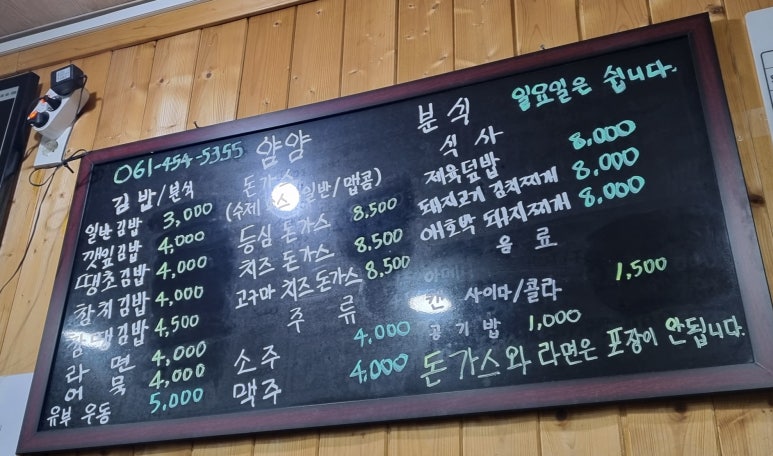 일요일은 쉽니다.
061-454-5355 얌얌 분식
김밥/분식
일반김밥 3,000
깻잎김밥 4,000
땡초김밥 4,000
참치김밥 4,000
김밥 4,500
라면 4,000
어묵 4,000
유부 우동 5,000
돈가스
(수제 일반/맵콤)
등심 돈가스 8,500
치즈 돈가스 8,500
고구마 치즈돈가스 8,500
주류
소주 4,000
맥주 4,000
식사
제육덮밥 8,000
돼지고기 김치찌개 8,000
애호박 돼지찌개 8,000
음료
캔 사이다/콜라 1,500
공기밥 1,000
돈가스와 라면은 포장이 안됩니다.